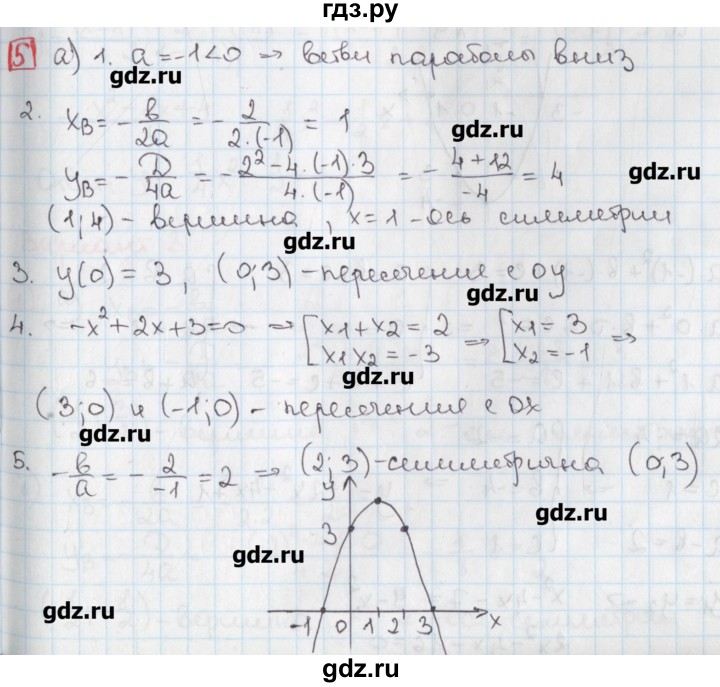 гдз.ру
5 а) 1. a = -1 < 0 ⇒ ветви параболы вниз
gdz.ru
2. xв = -в/2a = -2/(2·(-1)) = 1
gdz.ru
yв = -D/4a = -(2² - 4·(-1)·3)/(4·(-1)) = -(4+12)/(-4) = 4
gdz.ru
(1;4) - вершина, x = 1 - ось симметрии
gdz.ru
3. y(0) = 3, (0;3) - пересечение с oy
gdz.ru
4. -x² + 2x + 3 = 0 ⇒ [x1 + x2 = 2 ⇒ [x1 = 3 ⇒
[x1x2 = -3 [x2 = -1
gdz.ru
(3;0) и (-1;0) - пересечение с Ox
gdz.ru
5. -в/a = -2/-1 = 2 ⇒ (2;3) - симметрична (0;3)
y
gdz.ru
3
gdz.ru
gdz.ru
-1 0 1 2 3 x
gdz.ru